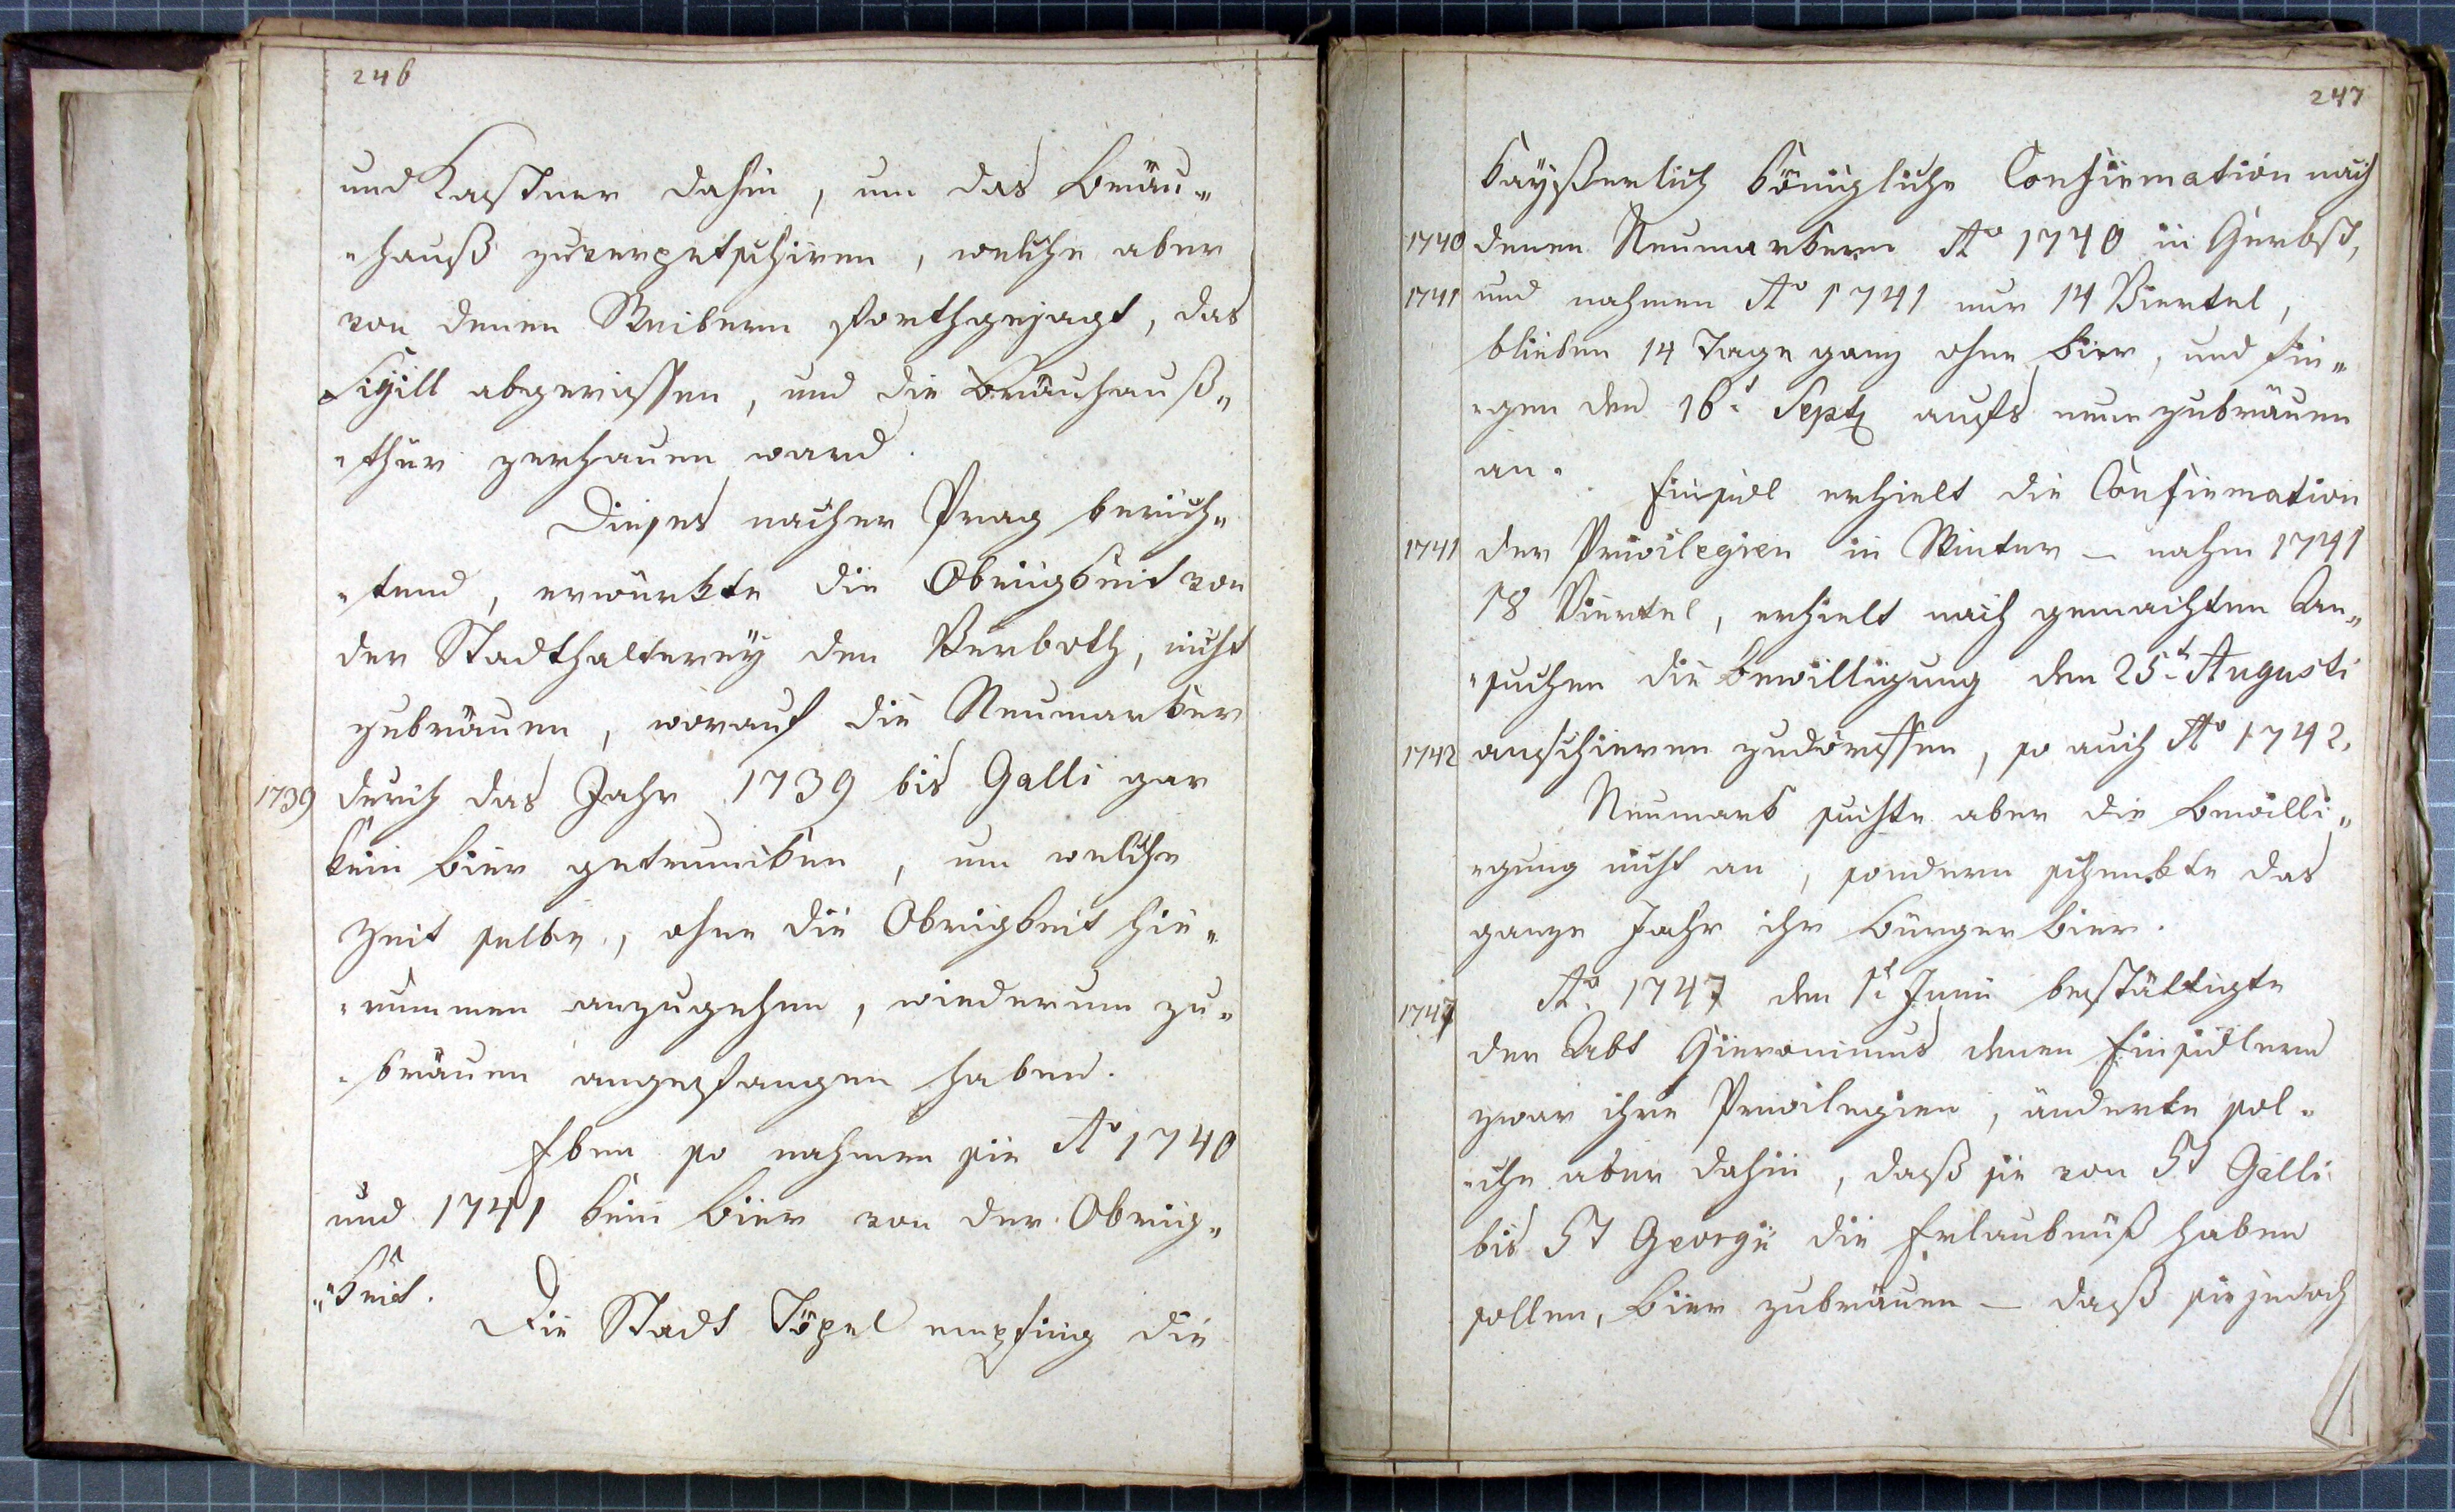 246
und Kastner dahin, um das Bräu„
„hauß zuverpetschiren, welche aber
von denen Weibern fforthgejagt, das
Sigill abgerissen, und die Bräuhauß„
„thür zerhauen ward.
Dieses nacher Prag berich„
„tend, erwürkte die Obrigkeit von
der Stadthalterey den Verboth, nicht
zubräuen, worauf die Neumarker
1739 durch das Jahr 1739 bis Galli gar
kein Bier getruncken, um welche
Zeit selbe, ohne die Obrigkeit hie„
„rummen anzugehen, wiederum zu„
„bräuen angefangen haben.
Eben so nahmen sie Aº 1740
und 1741 kein Bier von der Obrig„
„keit.
Die Stadt Töpel empfing die
247
Kayßerlich Königliche Confirmation nach
1740 denen Neumarkern Aº 1740 in Herbst,
1741 und nahmen Aº 1741 nur 14 Viertel,
blieben 14 Tage ganz ohne Bier, und fin„
„gen den 16t Sept aufs neue zubräuen
an.
Einsidl erhielt die Confirmation
1741 der Privilegien in Winter – nahm 1741
18 Viertel, erhielt nach gemachten An„
„suchen die Bewilligung den 25t Augusti
1742 anschieren zudörffen, so auch Aº 1742.
Neumark suchte aber die Bewilli„
„gung nicht an, sondern schenkte das
ganze Jahr ihr Bürger Bier.
1747 Aº 1747 den 1t Junii bestättigte
der Abt Hieronimus denen Einsidlern
zwar ihre Privilegien, änderte sol„
„che aber dahin, daß sie von St Galli
bis St Georgii die Erlaubnuß haben
sollen, Bier zubräuen – daß sie jedoch